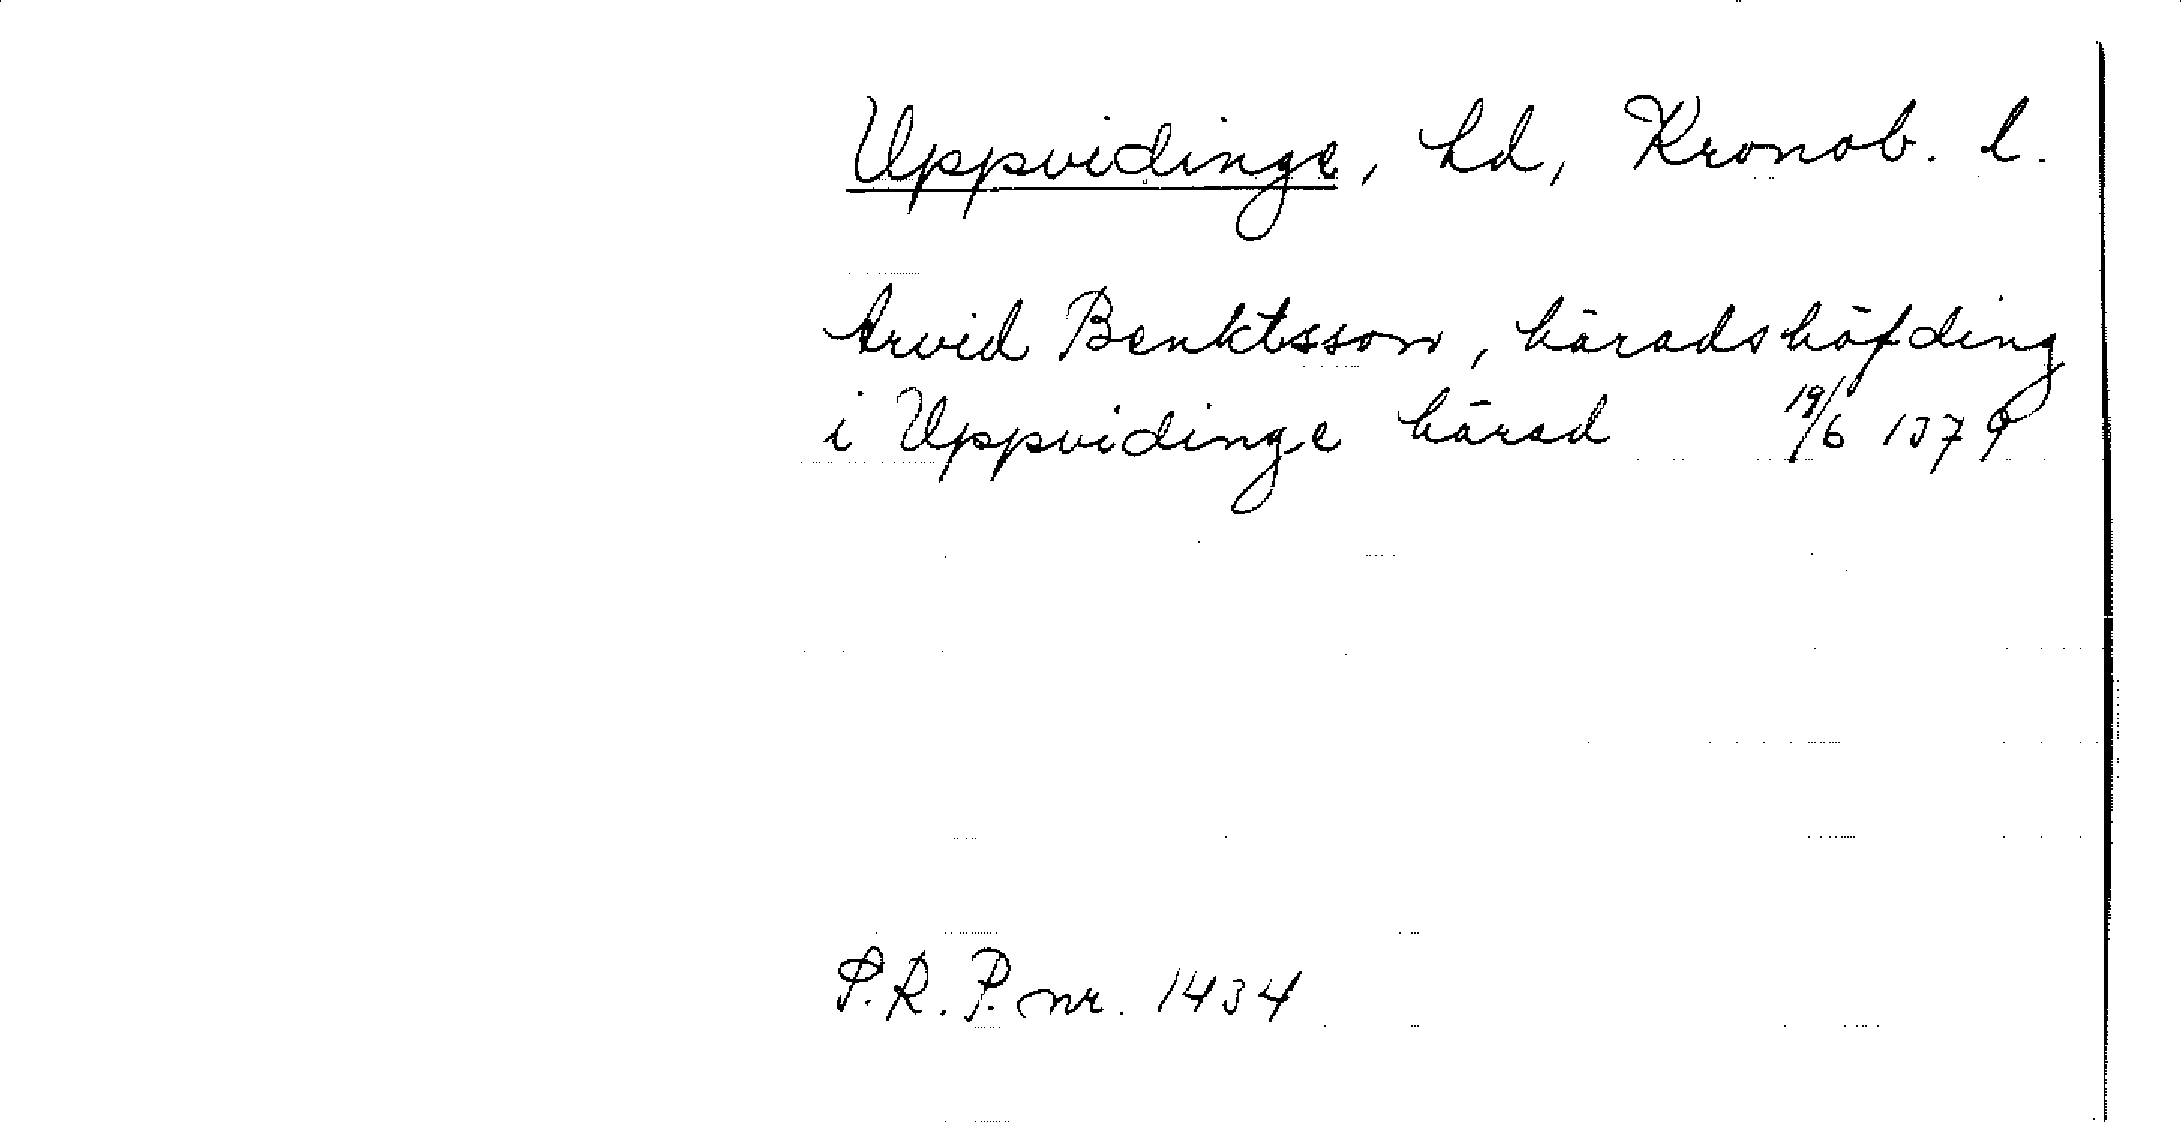 Uppvidinge, hd, Kronob. l.
Arvid Benktsson, häradshöfding
i Uppvidinge härad 19/6 1379
P.R.P. nr. 1434